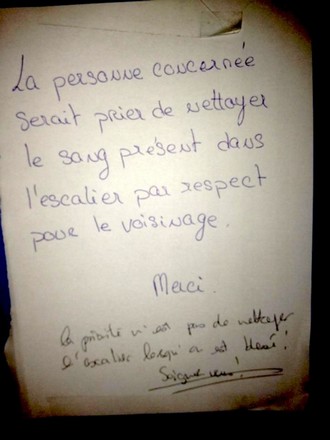 La personne concernée
serait prier de nettoyer
le sang présent dans
l'escalier par respect
pour le voisinage.
Merci.
La priorité n'est pas de nettoyer
l'escalier lorsqu'on est blessé!
Soignez vous!